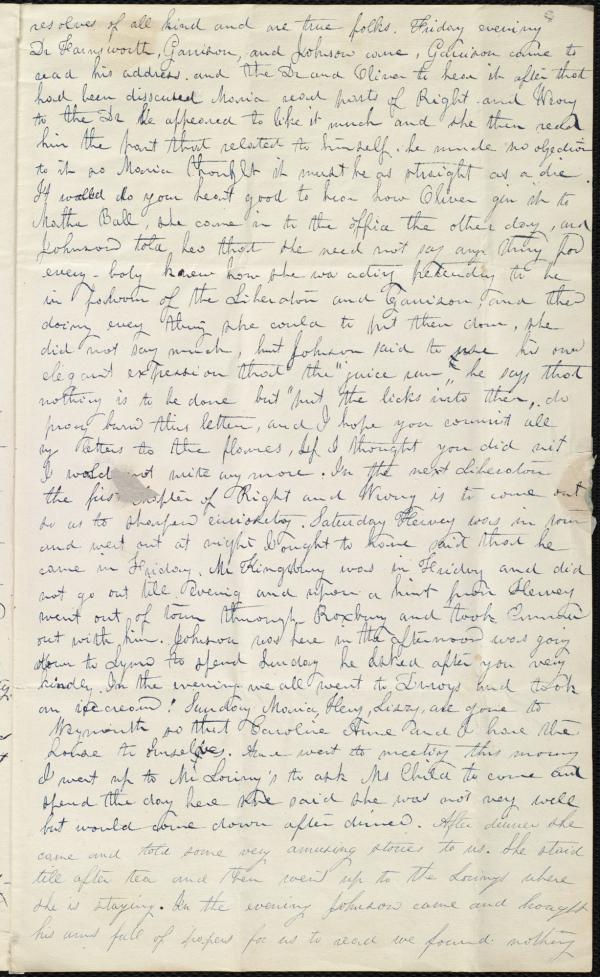 resolves of all kind and are true folks. Friday evening
Dr Farnsworth, Garrison, and Johnson came, Garrison came to
read his address. and the Dr and Oliver to hear it after that
had been disscused Maria read parts of Right and Wrong
to the Dr he appeared to like it much and she then read
him the part that related to himself. he made no objection
to it so Maria thought it must be as straight as a die.
It would do your heart good to hear how Oliver gin it to
Martha Ball, she came in to the office the other day, and
Johnson told her that she need not say any thing for
every-boby knew how she was acting pretending to be
in favour of the Liberator and Garrison, and then
doing every thing she could to put them down, she
did not say much, but Johnson said to use his own
elegant expression that the "juice run", he says that
nothing is to be done but "put the licks into them", do
pray burn this letter, and I hope you commit all
my letters to the flames, If I thought you did not
I would not write any more. In the next Liberator
the first chapter of Right and Wrong is to come out
so as to sharpen curiosity. Saturday Hervey was in town
and went out at night I ought to have said that he
came in Friday. Mr Kingsbury was in Friday and did
not go out till evening and upon a hint from Hervey
went out of town through Roxbury and took
out with him. Johnson was here in the afternoon was going
down to Lynn to spend Sunday he asked after you very
kindly. In the evening we all went to and took
an icecream! Sunday Maria, Heny, Lizzy, are gone to
Weymouth so that Caroline Anne and I have the
house to ourselves. Anne went to meeting this morning
I went up to Mr Loring's to ask Ms Child to come and
spend the day here she said she was not very well
but would come down after dinner. After dinner she
came and told some very amusing stories to us. She staid
till after tea and then went up to the Lorings where
she is staying. In the evening Johnson came and brought
his arms full of papers for us to read we found nothing